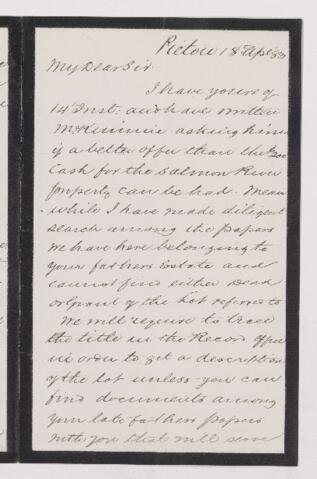 Pictou 18 Apl 83
My Dear Sir
I have yours of
14th Inst: and have written
McKinnie asking him
if a better offer than the $200
Cash for the Salmon River
property can be had. Mean
while I have made diligent
search among the papers
we have here belonging to
your fathers Estate and
cannot find either Deed
or Grant of the Lot referred to
We will require to trace
the title in the Record office
in order to get a description
of the lot unless you can
find documents among
your late fathers papers
with you that will serve